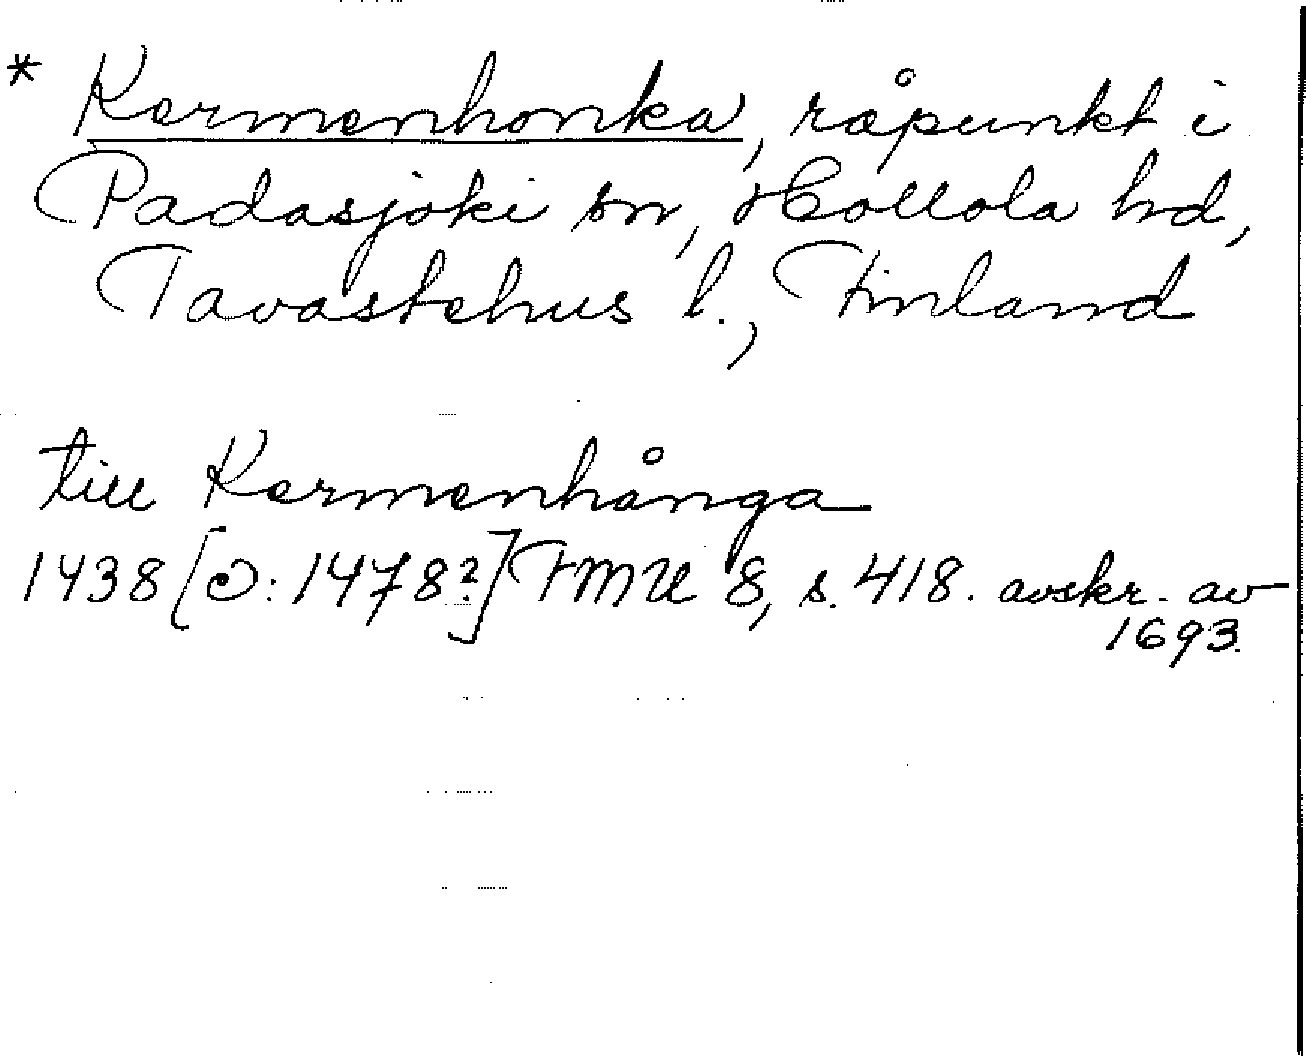 * Kermenhonka, råpunkt i
Padasjoki sn, Hollola hd,
Tavastehus l., Finland
till Kermenhånga
1438 [ɔ: 1478?] FMU 8, s. 418. avskr. av
1693.